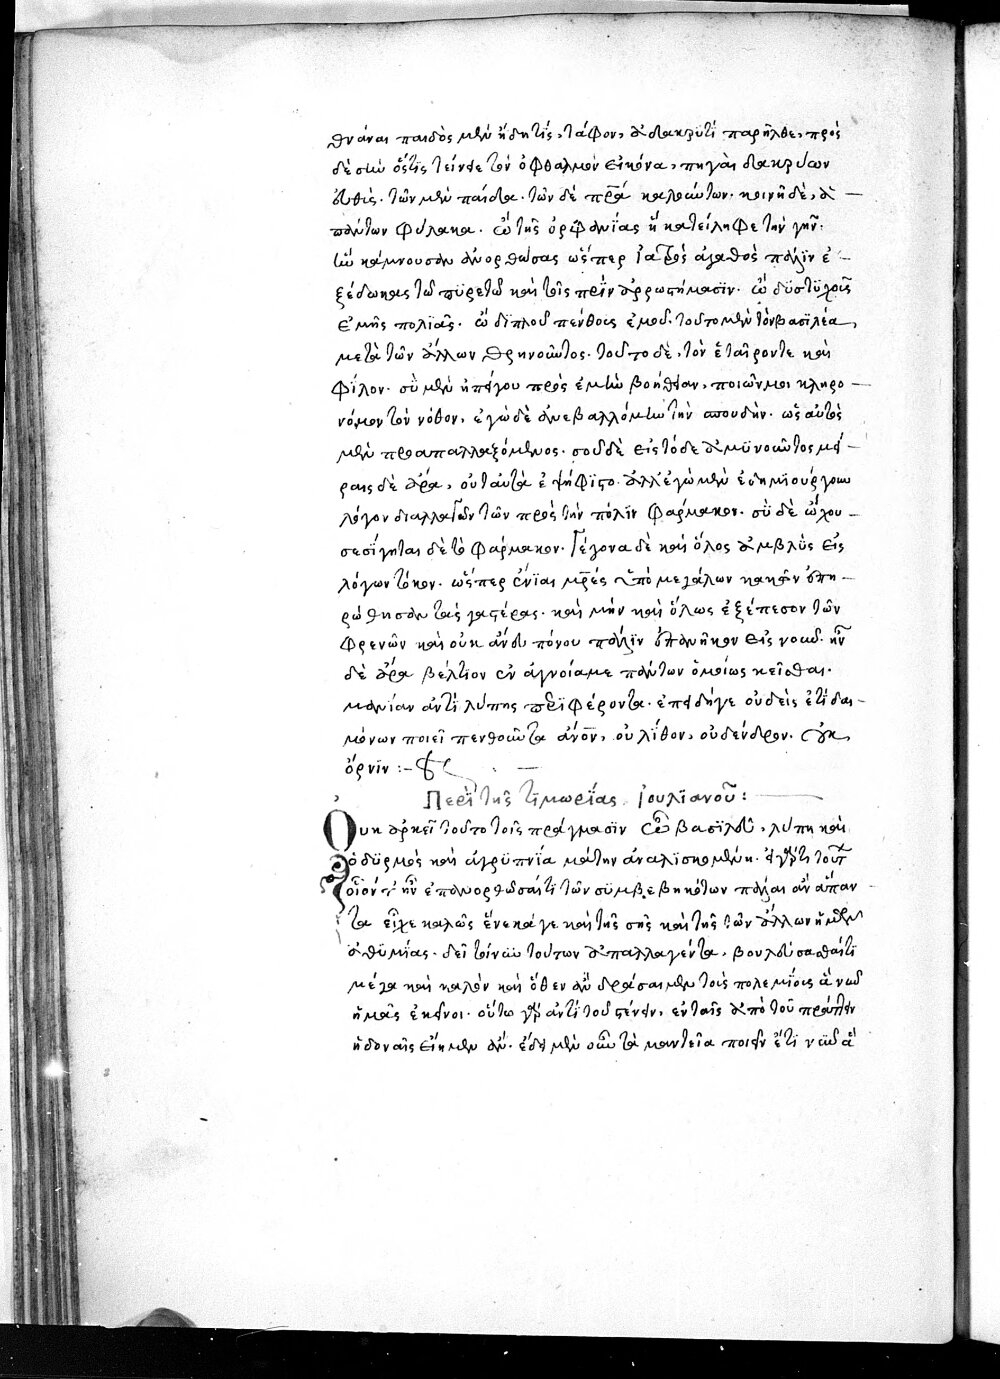 θνάναι παιδὸς μὲν ἤδη τίς, τάφον, ἀδακρυτὶ παρῆλθε, πρὸς
δὲ σὴν ὅςτις τείνει τὸν ὀφθαλμὸν εἰκόνα, πηγαὶ δακρύων
εὐθὺς. τῶν μὲν παῖδα. τῶν δὲ πρα καλούντων. κοινῇ δὲ, ἁ
πάντων φύλακα. ὢ τῆς ὀρφανίας ἣ κατείληφε τὴν γῆν.
ἣν κάμνουσαν ἀνορθώσας ὥσπερ ἰατρὸς ἀγαθὸς πάλιν ἐ
ξέδωκας τῷ πυρετῷ καὶ τοῖς πρὶν ἀρρωστήμασιν. ὢ δυστυχοῦς
ἐμῆς πολιᾶς. ὢ διπλοῦ πένθους ἐμοῦ. τοῦτο μὲν τὸν βασιλέα,
μετὰ τῶν ἄλλων θρηνοῦντος. τοῦτο δὲ, τὸν ἑταῖρόν τε καὶ
φίλον. σὺ μὲν ἠπείγου πρὸς ἐμὴν βοήθειαν, ποιῶν μοι κληρο
νόμον τὸν νόθον, ἐγὼ δὲ ἀνεβαλλόμην τὴν σπουδὴν. ὡς αὐτὸς
μὲν προαπαλλαξόμενος. σοῦ δὲ εἰς τόδε ἀμυνοῦντος μοί
ραις δὲ ἄρα, οὐ ταὐτὰ ἐψήφιστο. ἀλλ' ἐγὼ μὲν ἐδημιούργουν
λόγον διαλλαγῶν τῶν πρὸς τὴν πόλιν φάρμακον. σὺ δὲ ᾤχου
σεσίγηται δὲ τὸ φάρμακον. γέγονα δὲ καὶ ὅλος ἀμβλὺς εἰς
λόγων τόκον. ὥσπερ ἔνιαι μρές ὑπὸ μεγάλων κακῶν ἐπη
ρώθησαν τὰς γαστέρας. καὶ μὴν καὶ ὅλως ἐξέπεσον τῶν
φρενῶν καὶ οὐκ ἄνευ πόνου πάλιν ἐπανῆκον εἰς νοῦν. ἦν
δὲ ἄρα βέλτιον ἐν ἀγνοίᾳ με πάντων ὁμοίως κεῖσθαι.
μανίαν ἀντὶ λύπης περιφέροντα. ἐπειδήγε οὐδεὶς ἔτι δαι
μόνων ποιεῖ πενθοῦντα ἄνον, οὐ λίθον, οὐ δένδρον. οὐκ
ὄρνιν :-
Περὶ τῆς τιμωρίας Ἰουλιανοῦ :
Οὐκ ἀρκεῖ τοῦτο τοῖς πράγμασιν ὦ βασιλεῦ, λύπη καὶ
ὀδυρμὸς καὶ ἀγρυπνία μάτην ἀναλισκομένη. εἰ γάρ τι τούτ
οἷόν τ' ἦν ἐπανορθῶσαί τι τῶν συμβεβηκότων πάλαι ἂν ἅπαν
τα εἶχε καλῶς ἕνεκά γε καὶ τῆς σῆς καὶ τῆς τῶν ἄλλων ἡμῶν
ἀθυμίας. δεῖ τοίνυν τούτων ἀπαλλαγέντα, βουλεύσασθαί τι
μέγα καὶ καλὸν καὶ ὅθεν ἂν δράσαιμεν τοὺς πολεμίους ἃ νῦν
ἡμᾶς ἐκεῖνοι. οὕτω γὰρ ἀντὶ τοῦ στένειν, ἐν ταῖς ἀπὸ τοῦ πράττειν
ἡδοναῖς εἴημεν ἄν. ἔδει μὲν οὖν τὰ μαντεῖα ποιεῖν ἔτι νῦν ἃ